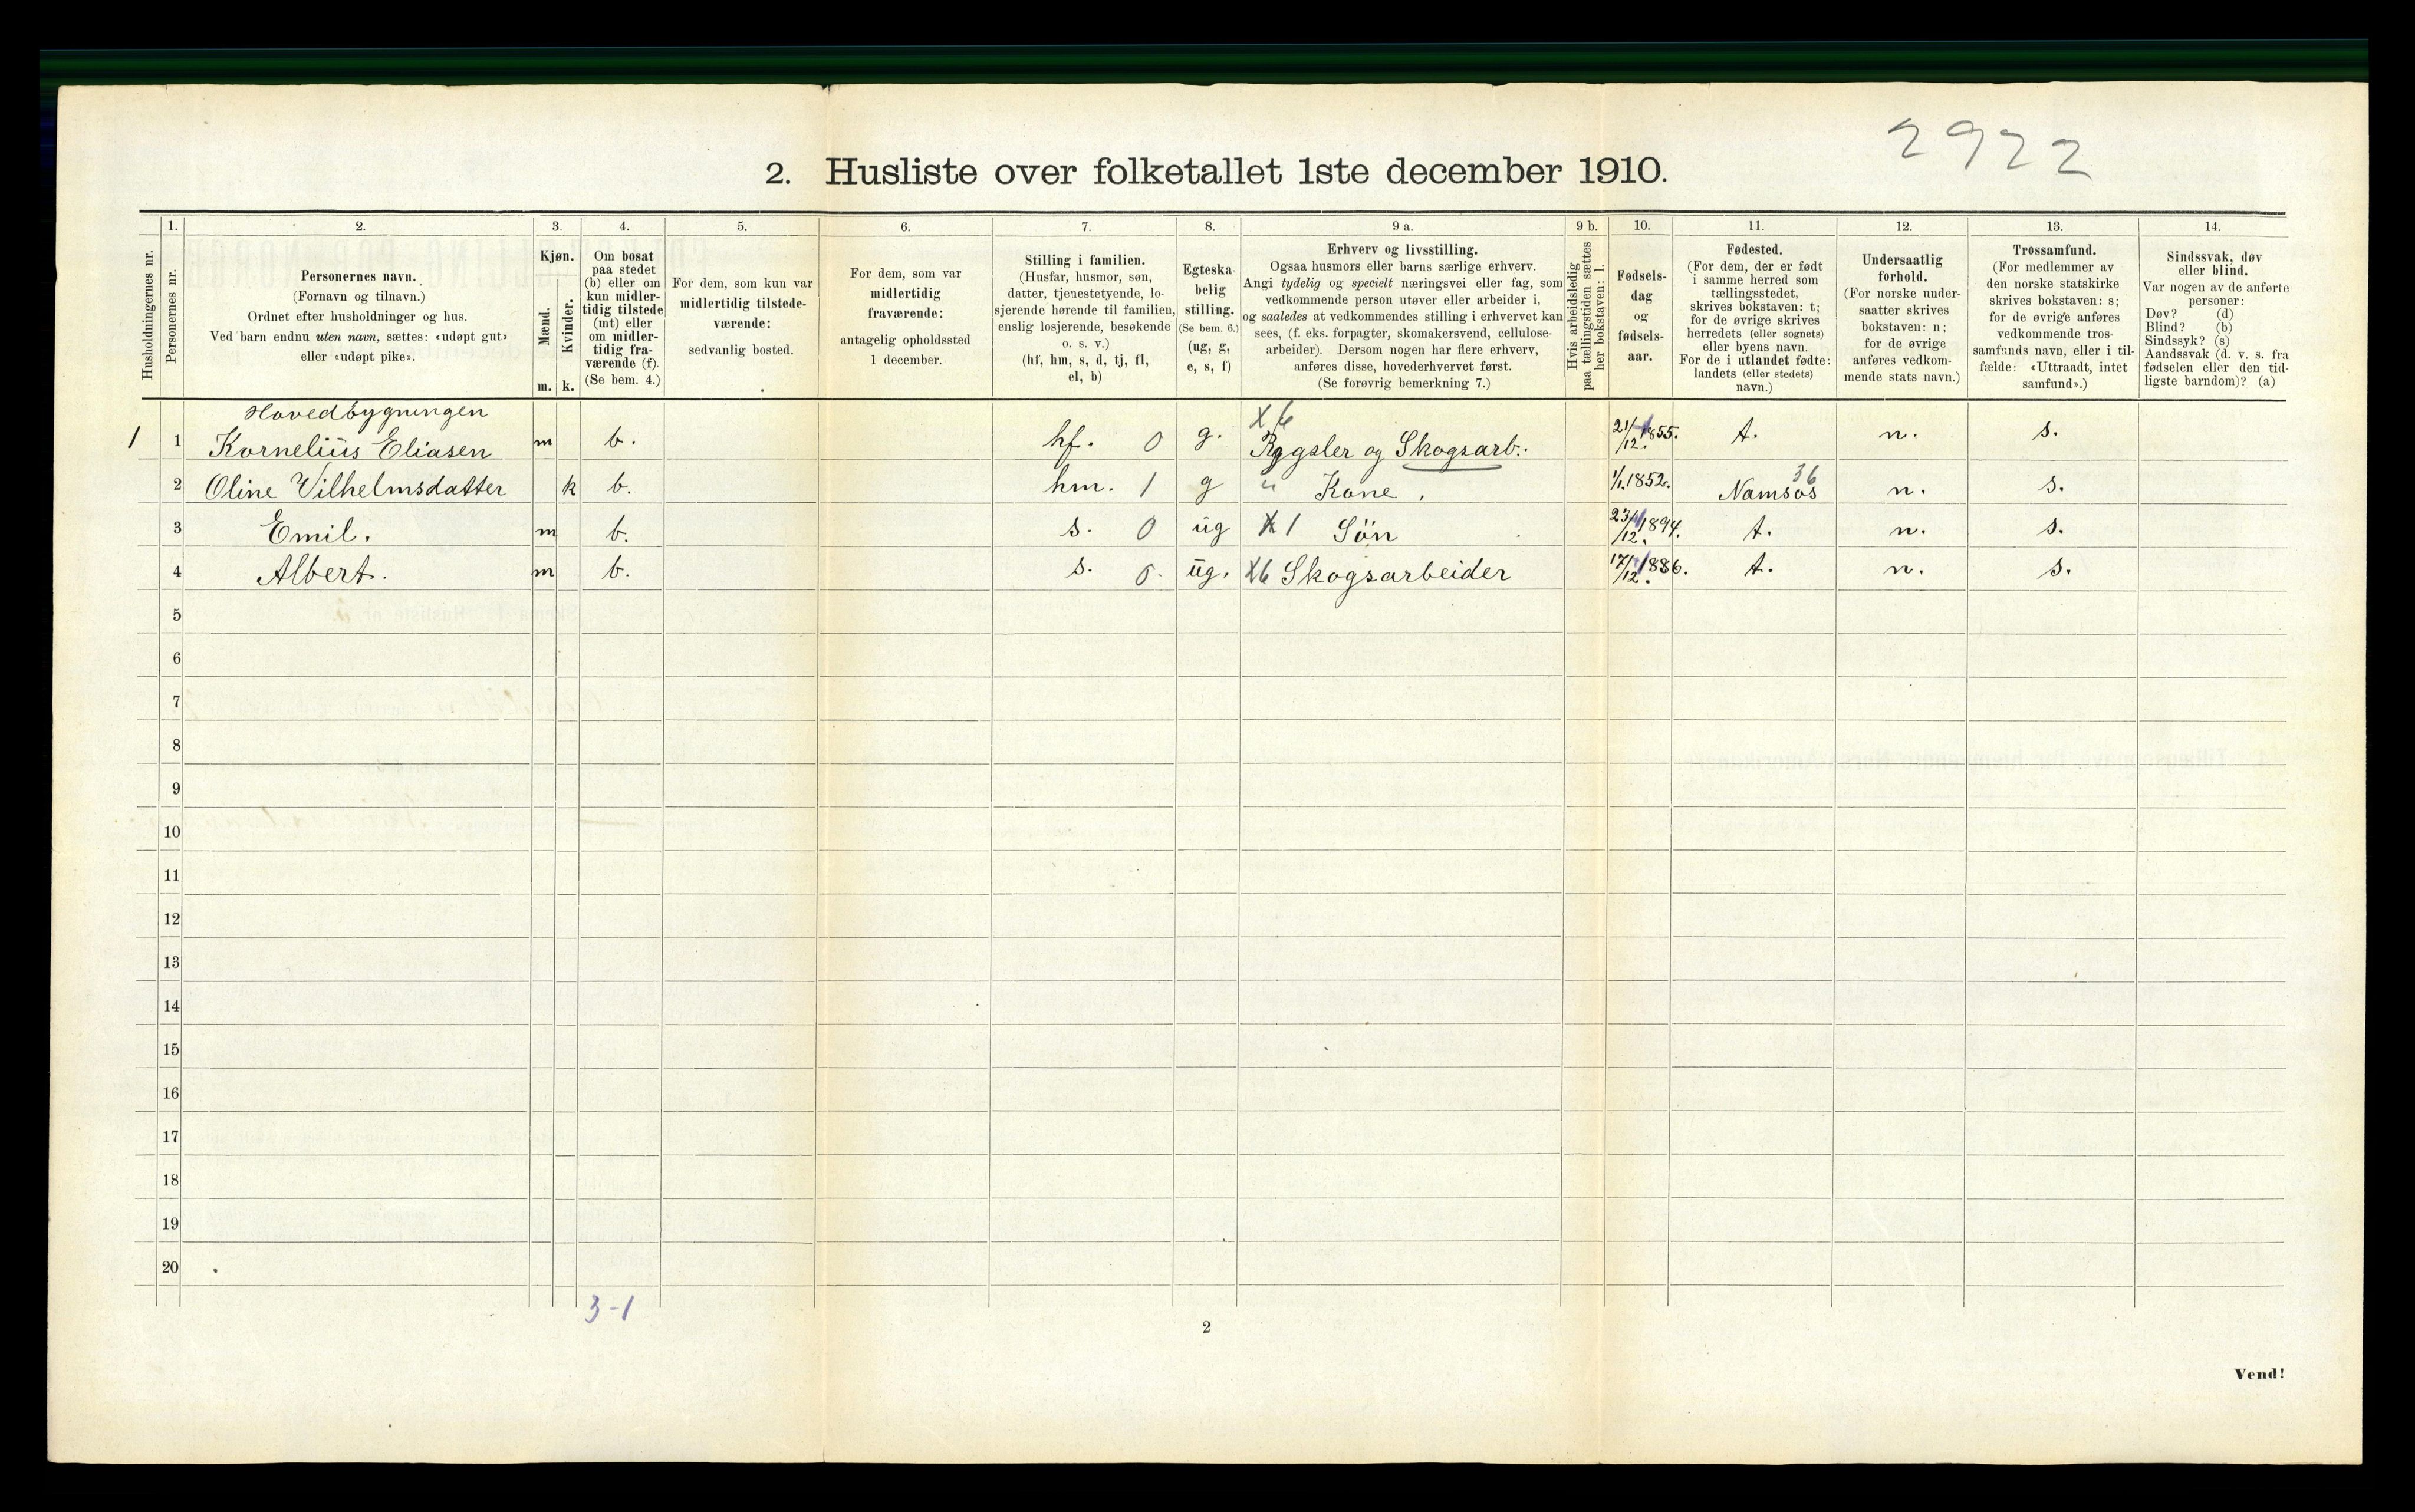 2922
2. Husliste over folketallet 1ste december 1910.
Husholdningernes nr.
1.
Personernes nr.
2.
Personernes navn.
(Fornavn og tilnavn.)
Ordnet efter husholdninger og hus.
Ved barn endnu uten navn, sættes: «udøpt gut»
eller «udøpt pike».
3.
Kjøn.
Mænd.
Kvinder.
m. k.
4.
Om bosat
paa stedet
(b) eller om
kun midler-
tidig tilstede
(mt) eller
om midler-
tidig fra-
værende (f).
(Se bem. 4.)
5.
For dem, som kun var
midlertidig tilstede-
værende:
sedvanlig bosted.
6.
For dem, som var
midlertidig
fraværende:
antagelig opholdssted
1 december.
7.
Stilling i familien.
(Husfar, husmor, søn,
datter, tjenestetyende, lo-
sjerende hørende til familien,
enslig losjerende, besøkende
o. s. v.)
(hf, hm, s, d, tj, fl,
el, b)
8.
Egteska-
belig
stilling.
(Se bem. 6.)
(ug, g,
e, s, f)
9 a.
Erhverv og livsstilling.
Ogsaa husmors eller barns særlige erhverv.
Angi tydelig og specielt næringsvei eller fag, som
vedkommende person utøver eller arbeider i,
og saaledes at vedkommendes stilling i erhvervet kan
sees, (f. eks. forpagter, skomakersvend, cellulose-
arbeider). Dersom nogen har flere erhverv,
anføres disse, hovederhvervet først.
(Se forøvrig bemerkning 7.)
9 b.
Hvis arbeidsledig
paa tællingstiden sættes
her bokstaven: l.
10.
Fødsels-
dag
og
fødsels-
aar.
11.
Fødested.
(For dem, der er født
i samme herred som
tællingsstedet,
skrives bokstaven: t;
for de øvrige skrives
herredets (eller sognets)
eller byens navn.
For de i utlandet fødte:
landets (eller stedets)
navn.)
12.
Undersaatlig
forhold.
(For norske under-
saatter skrives
bokstaven: n;
for de øvrige
anføres vedkom-
mende stats navn.)
13.
Trossamfund.
(For medlemmer av
den norske statskirke
skrives bokstaven: s;
for de øvrige anføres
vedkommende tros-
samfunds navn, eller i til-
fælde: «Uttraadt, intet
samfund».)
14.
Sindssvak, døv
eller blind.
Var nogen av de anførte
personer:
Døv? (d)
Blind? (b)
Sindssyk? (s)
Aandssvak (d. v. s. fra
fødselen eller den tid-
ligste barndom)? (a)
Hovedbygningen X 6
1 1 Kornelius Eliasen m b. hf. 0 g. og Skogsarb. 21/12 1855. t. n. s.
2 Oline Vilhelmsdatter k b. hm. 1 g " Kone. 1/1 1852. Namsos 36 n. s.
3 Emil. m b. s. 0 ug X 1 Søn 23/12 1894. t. n. s.
4 Albert. m b. s. 0. ug. X6 Skogsarbeider 17/12 1886. t. n. s.
5
6
7
8
9
10
11
12
13
14
15
16
17
18
19
20
3-1
2
Vend!